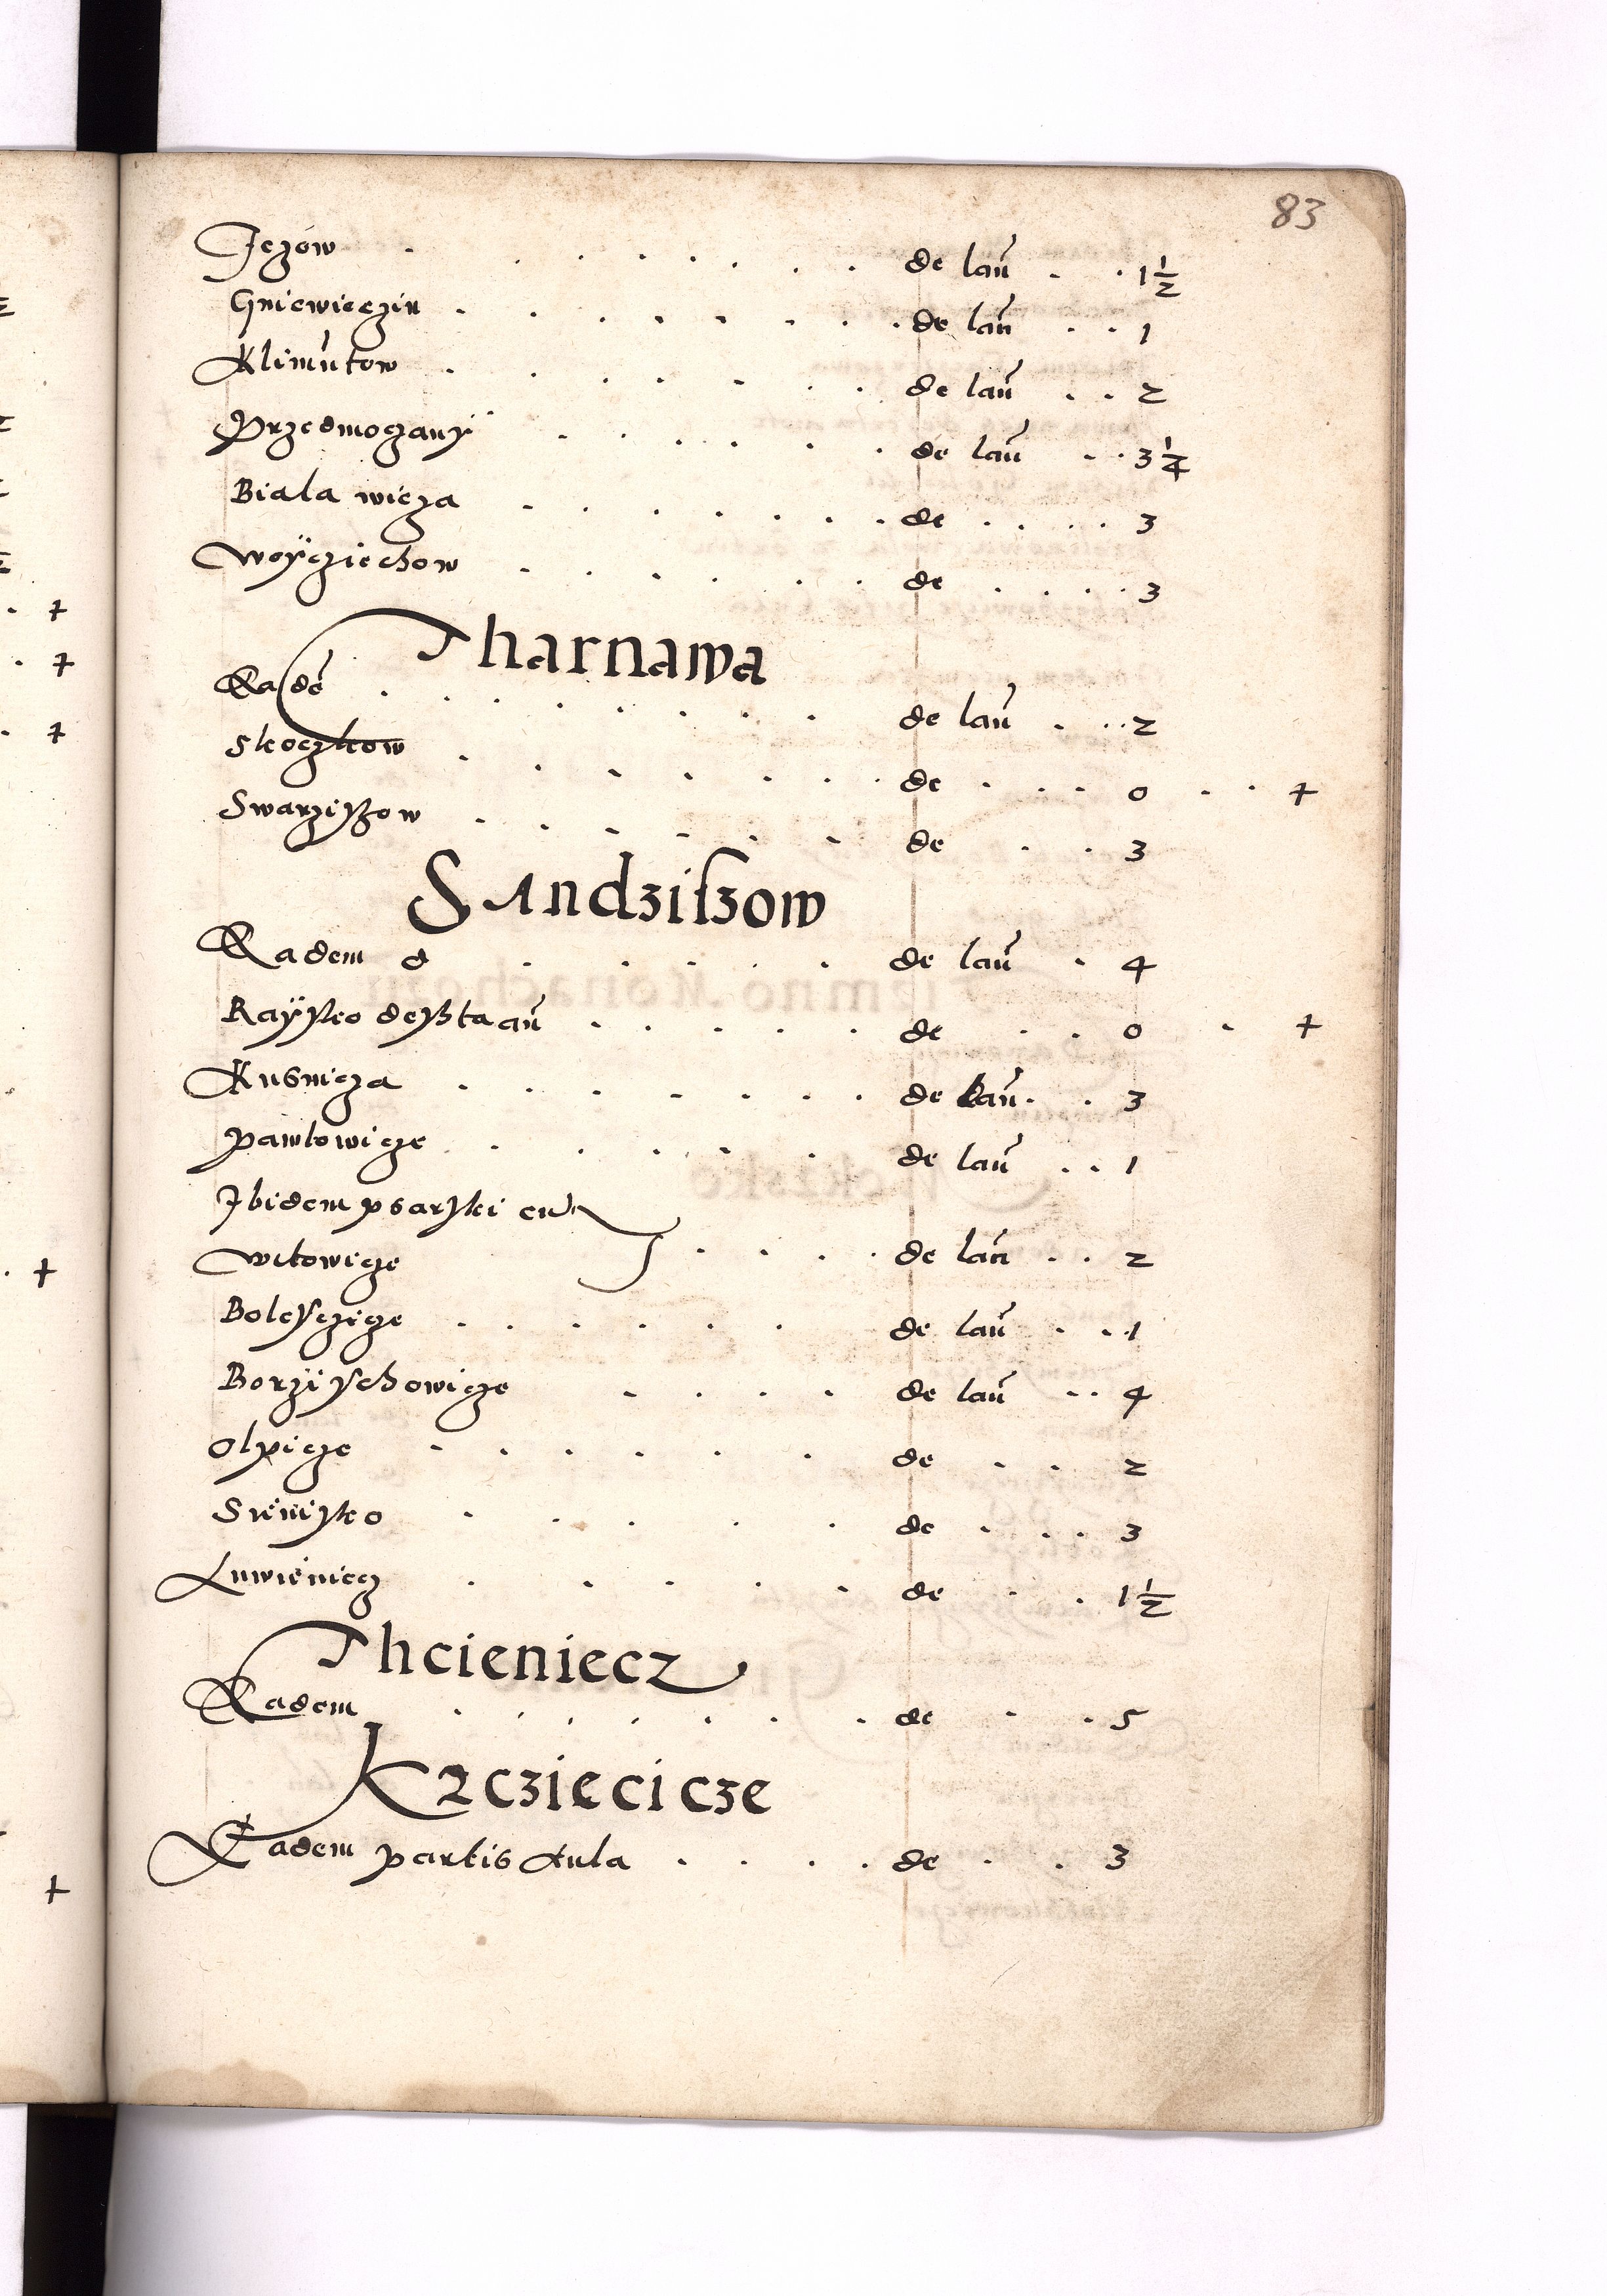 83
Jezów . . . . . . . . de lanỉ . . 1 1/2
Gniewieczin . . . . . . . . de lan̄ . . 1
Klimŭtow . . . . . . . de lan̄ . . 2
Przedmoczany . . . . . . de lan̄ . . 3 1/4
Biala wieza . . . . . . . de . . . . 3
Woÿcziechow . . . . . . de . . . . 3
Tharnawa
Eadē . . . . . . . . de lan̄ . . . 2
Skoczkow . . . . . . . de . . . 0 . . +
Swarziszow . . . . . . de . . 3
Sandziszow
Eadem d . . . . . de lan̄ . 4
Raÿsko . . . . . de . . 0 . +
Kusnicza . . . . . . . de Lan̄ . . 3
Pawlowicze . . . . . de lan̄ . . 1
Ibidem psarski cū
Witowicze . . . . de lan̄ . . 2
Bolesczicze . . . . . . de lan̄ . . 1
Borzischowicze . . . . de lan̄ . . 4
Olpicze . . . . . . de . . 2
Snie . . . . . de . . . 3
Luwieniecz . . . . . de . . 1 1/2
Thcieniecz
Eadem . . . . . . . de . . 5
Krcziecicze
Eadem partis Aula . . . . de . . 3